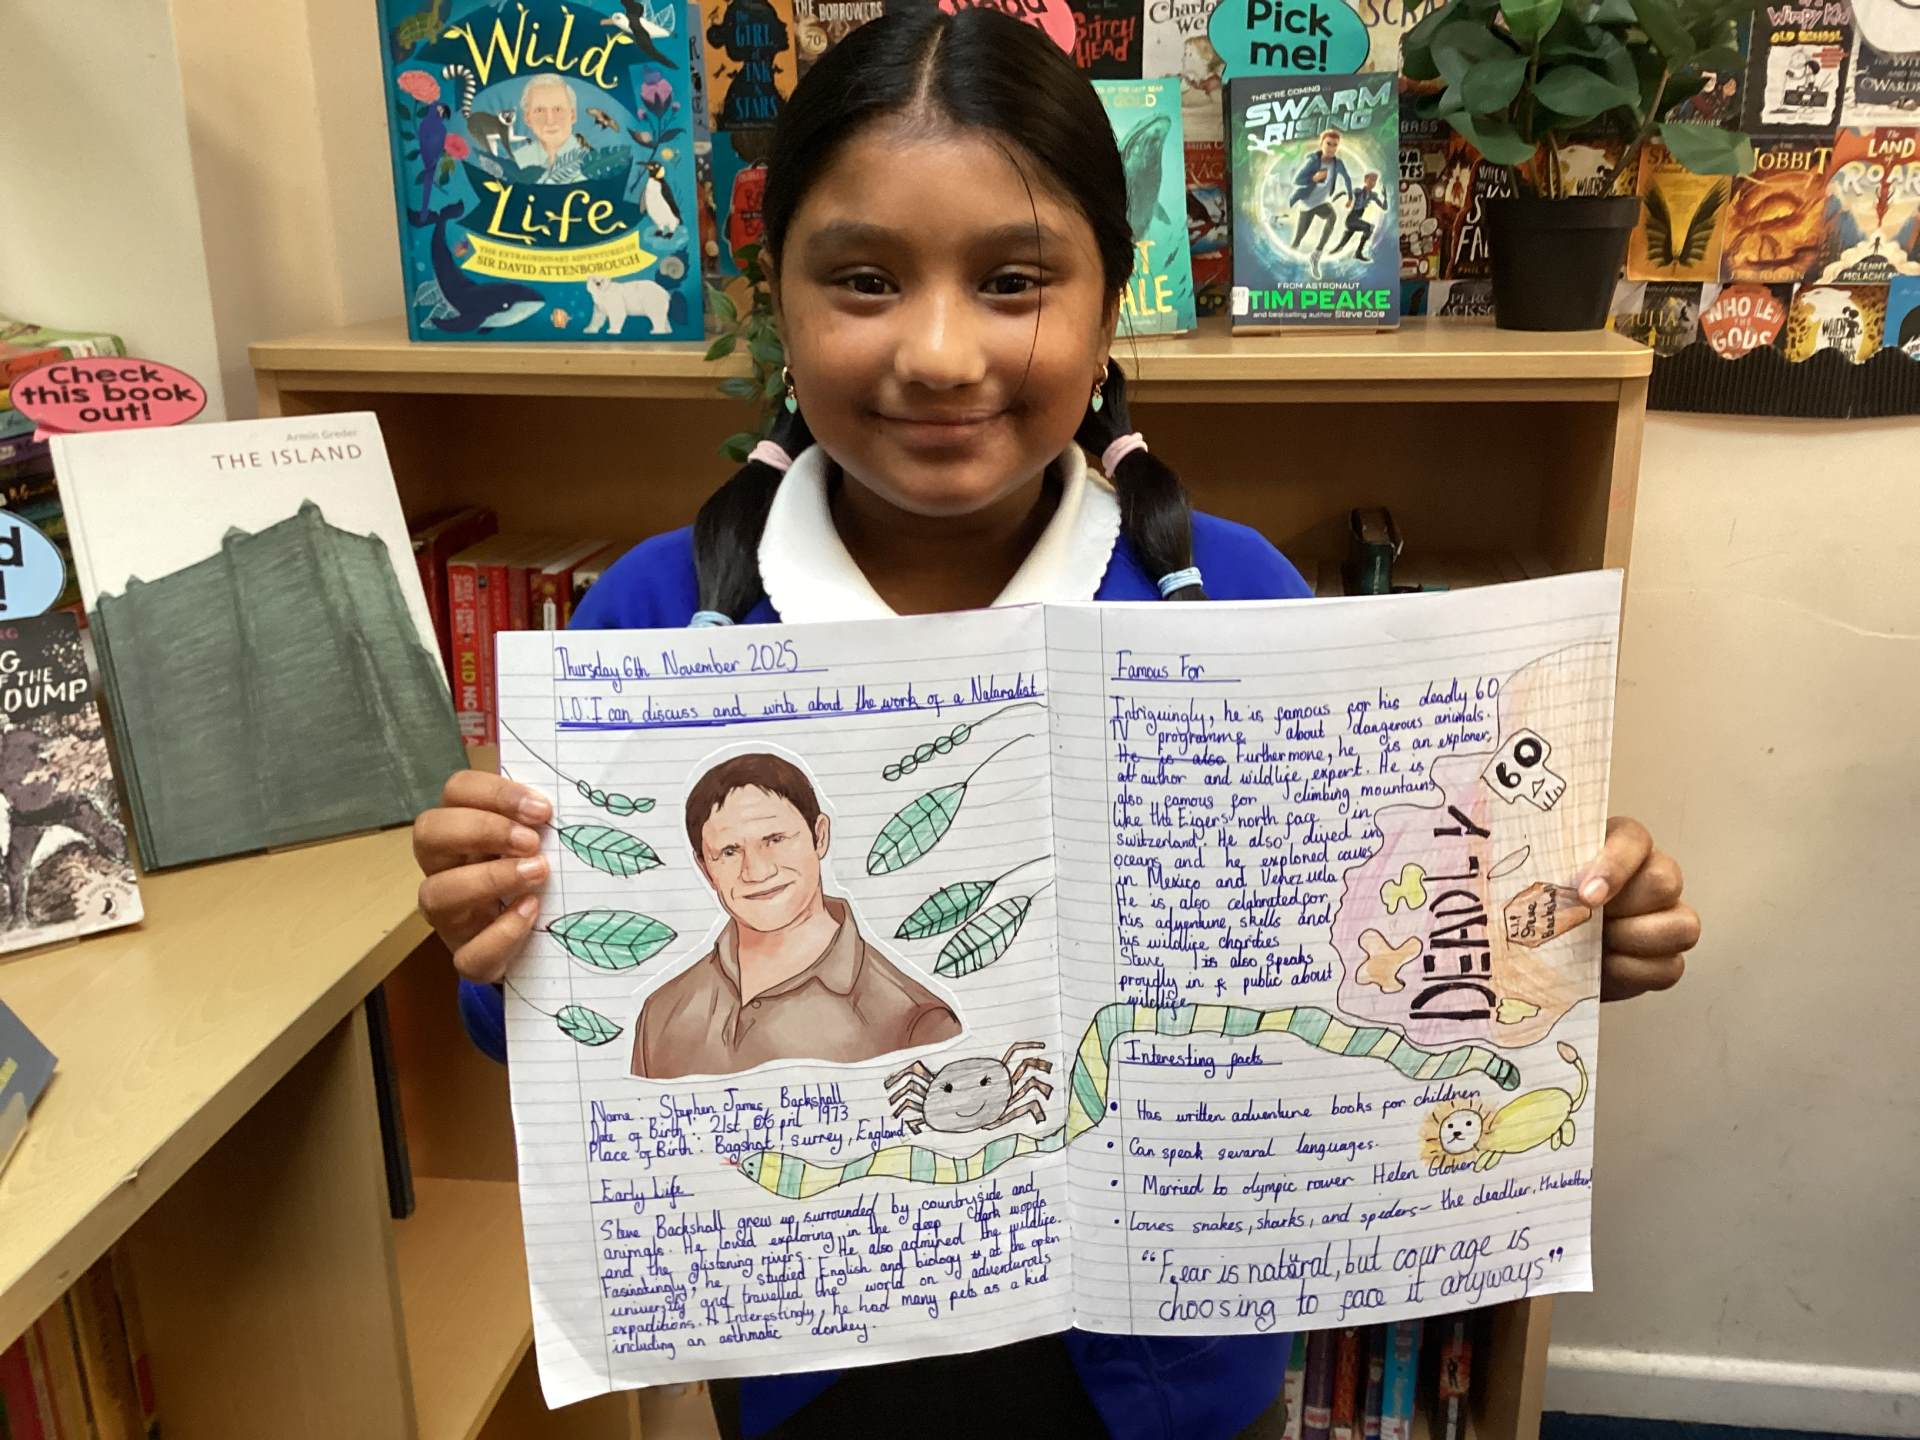 Wild
Life
THE EXTRAORDINARY ADVENTURES OF
SIR DAVID ATTENBOROUGH
THE BORROWERS
GIRL
INK
STARS
STITCH
HEAD
Pick
me!
THEY'RE COMING...
SWARM
RISING
FROM ASTRONAUT
TIM PEAKE
and bestselling author Steve Cole
Wimpy Kid
OLD SCHOOL
HOBBIT
The
LAND
of
ROAR
JENNY
WHO LET
THE
GODS
Check
this book
out!
Armin Greder
THE ISLAND
OF THE
DUMP
Thursday 6th November 2025
L.O: I can discuss and write about the work of a Naturalist
Name: Stephen James Backshall
Date of Birth: 21st April 1973
Place of Birth: Bagshot, Surrey, England
Early Life
Steve Backshall grew up surrounded by countryside and
animals. He loved exploring in the deep dark woods
and the glistening rivers. He also admired the wildlife.
Fasinatingly, he studied English and biology at the open
university and travelled the world on adventurous
expaditions. Interestingly, he had many pets as a kid
including an asthmatic donkey.
Famous For
Intriguingly, he is famous for his deadly 60
TV programme about dangerous animals.
He is also Furthermore, he is an explorer,
author and wildlife expert. He is
also famous for climbing mountains
like the Eigers north face in
Switzerland. He also dived in
oceans and he explored caves
in Mexico and Venezuela
He is also celabrated for
his adventure skills and
his wildlife charities
Steve is also speaks
proudly in public about
wildlife
60
DEADLY
Steve
Backshall
Interesting facts
• Has written adventure books for children
• Can speak sevaral languages.
• Married to olympic rower Helen Glover
• Loves snakes, sharks, and spiders- the deadlier, the better!
"Fear is natural, but courage is
choosing to face it anyways"